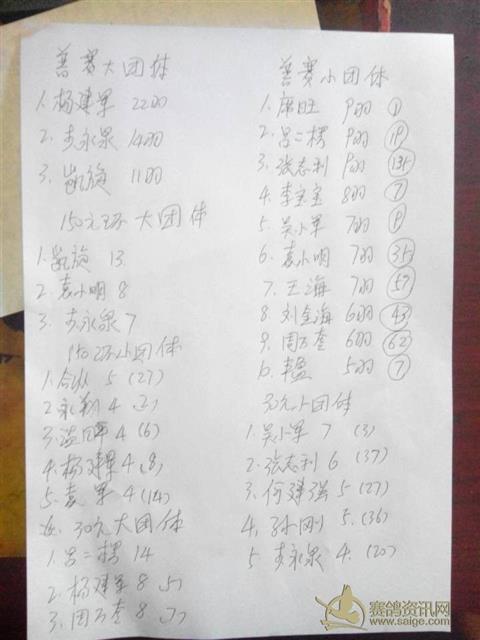 普赛大团体
1. 杨建军 22羽
2. 步永泉 14羽
3. 凯旋 11羽
150元环大团体
1. 凯旋 13
2. 袁小明 8
3. 步永泉 7
150环小团体
1. 合队 5 (27)
2. 永翔 4
3. 4 (6)
4. 杨建军 4 (8)
5. 袁军 4 (14)
30元大团体
1. 吕二楞 14
2. 杨建军 8
3. 周万奎 8
普赛小团体
1. 席旺 9羽 ①
2. 吕二楞 9羽 19
3. 张志利 9羽 135
4. 李宝宝 8羽 ⑦
5. 吴小军 7羽
6. 袁小明 7羽 35
7. 王海 7羽 57
8. 刘金海 6羽 43
9. 周万奎 6羽 62
10. 5羽 ⑦
30元小团体
1. 吴小军 7 (3)
2. 张志利 6 (37)
3. 何建强 5 (27)
4. 孙刚 5. (36)
5. 步永泉 4. (20)
赛鸽资讯网
www.saige.com